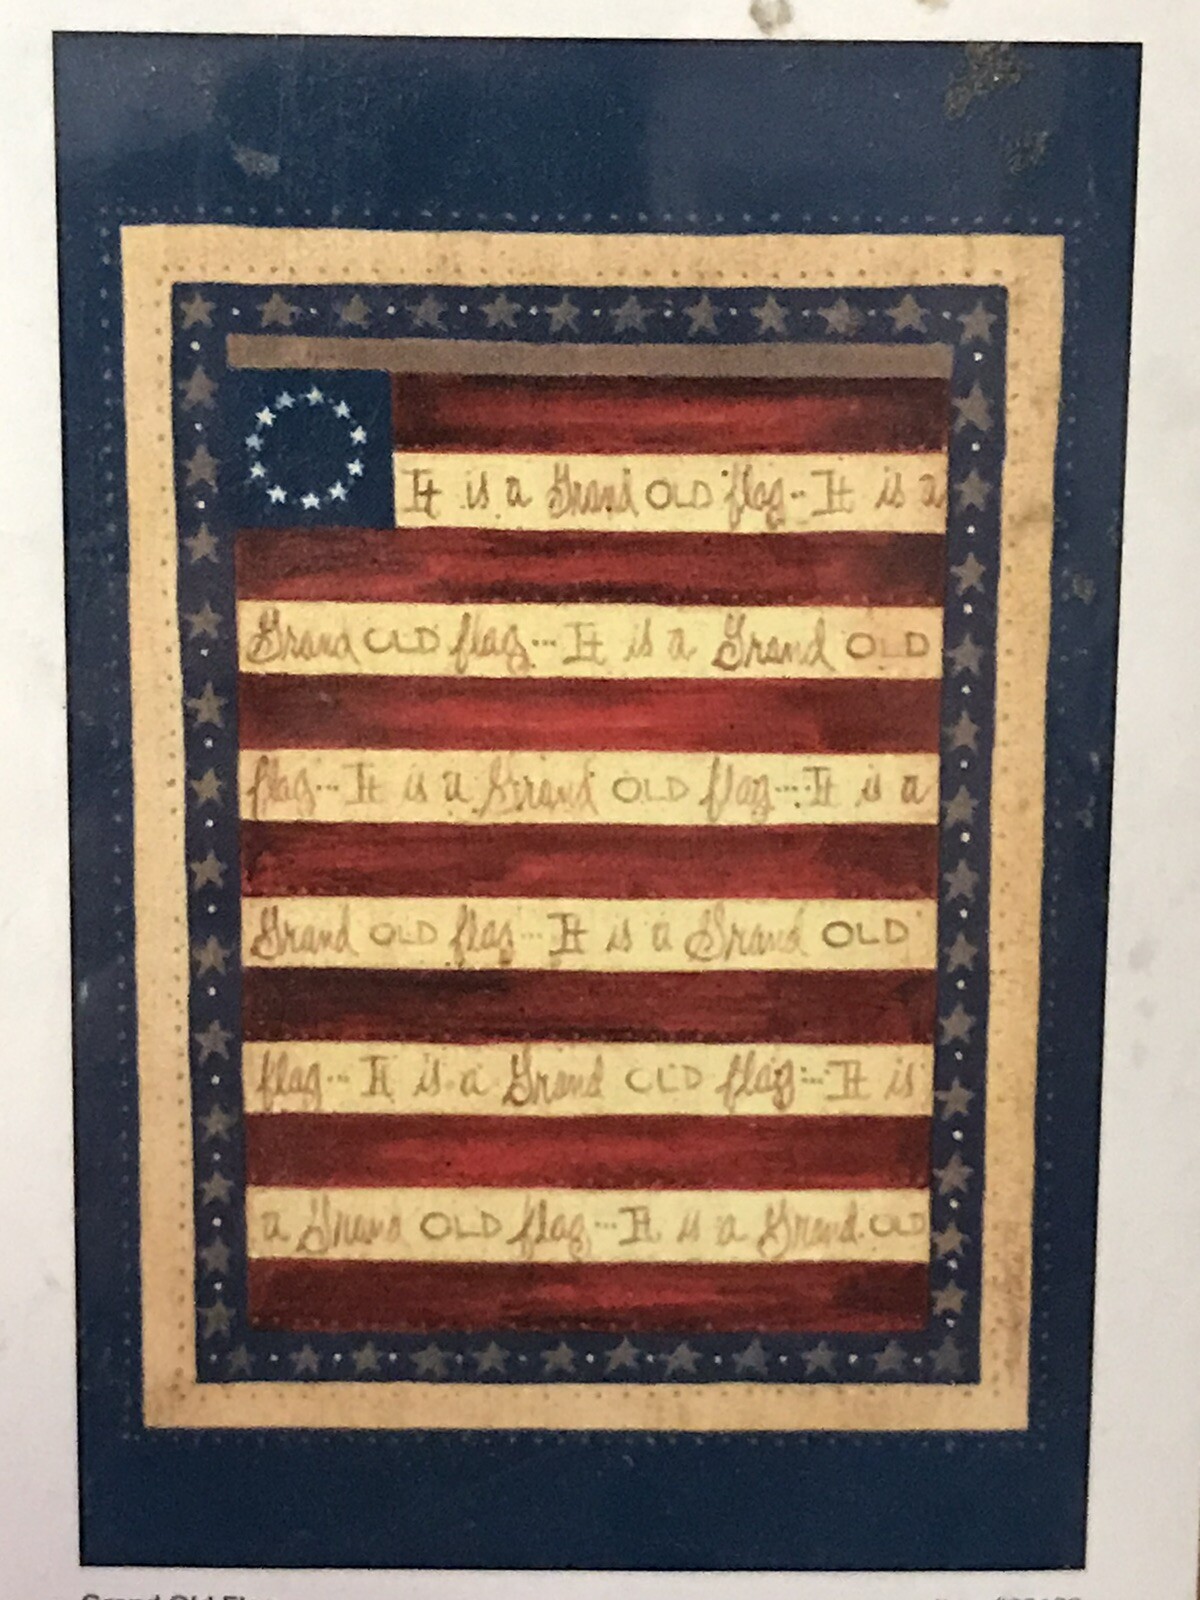 It is a Grand OLD flag... It is a
Grand OLD flag... It is a Grand OLD
flag... It is a Grand OLD flag... It is a
Grand OLD flag... It is a Grand OLD
flag... It is a Grand OLD flag... It is
a Grand OLD flag... It is a Grand OLD